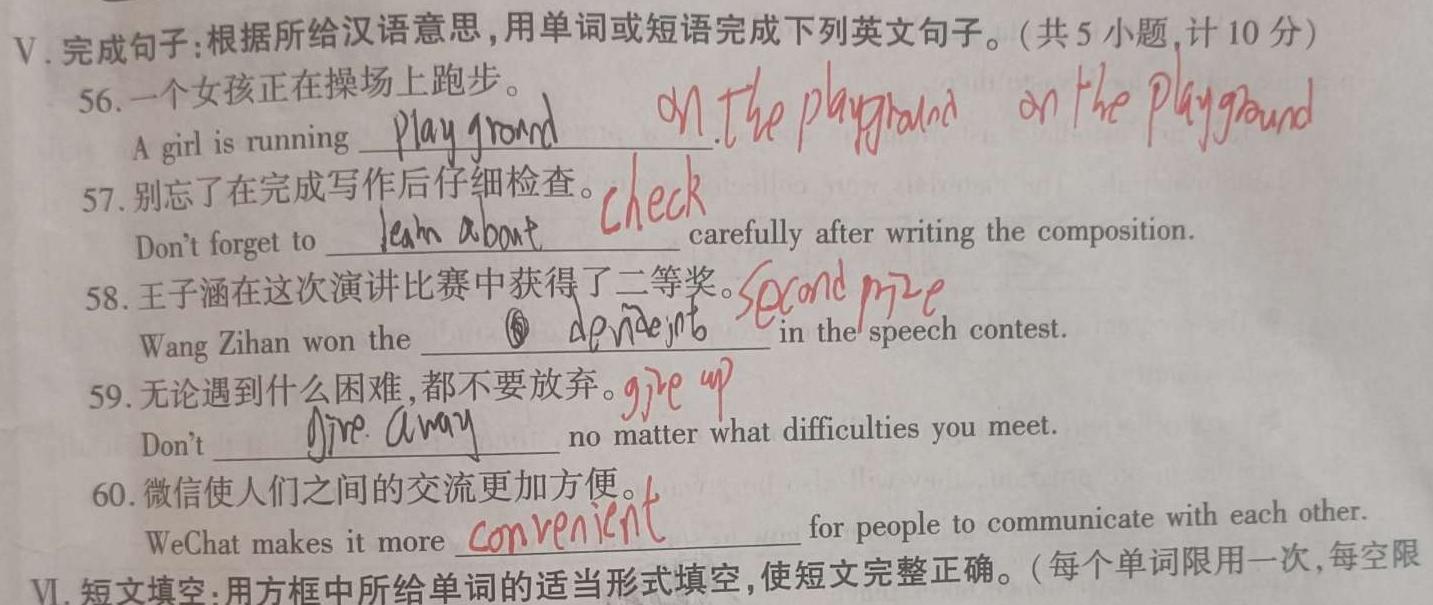 Ⅴ. 完成句子:根据所给汉语意思,用单词或短语完成下列英文句子。(共5小题,计10分)
56. 一个女孩正在操场上跑步。 on the playground on the playground
A girl is running play ground.
57. 别忘了在完成写作后仔细检查。 check
Don't forget to learn about carefully after writing the composition.
58. 王子涵在这次演讲比赛中获得了二等奖。 second prize
Wang Zihan won the in the speech contest.
59. 无论遇到什么困难,都不要放弃。 give up
Don't give away no matter what difficulties you meet.
60. 微信使人们之间的交流更加方便。
WeChat makes it more convenient for people to communicate with each other.
Ⅵ. 短文填空:用方框中所给单词的适当形式填空,使短文完整正确。(每个单词限用一次,每空限